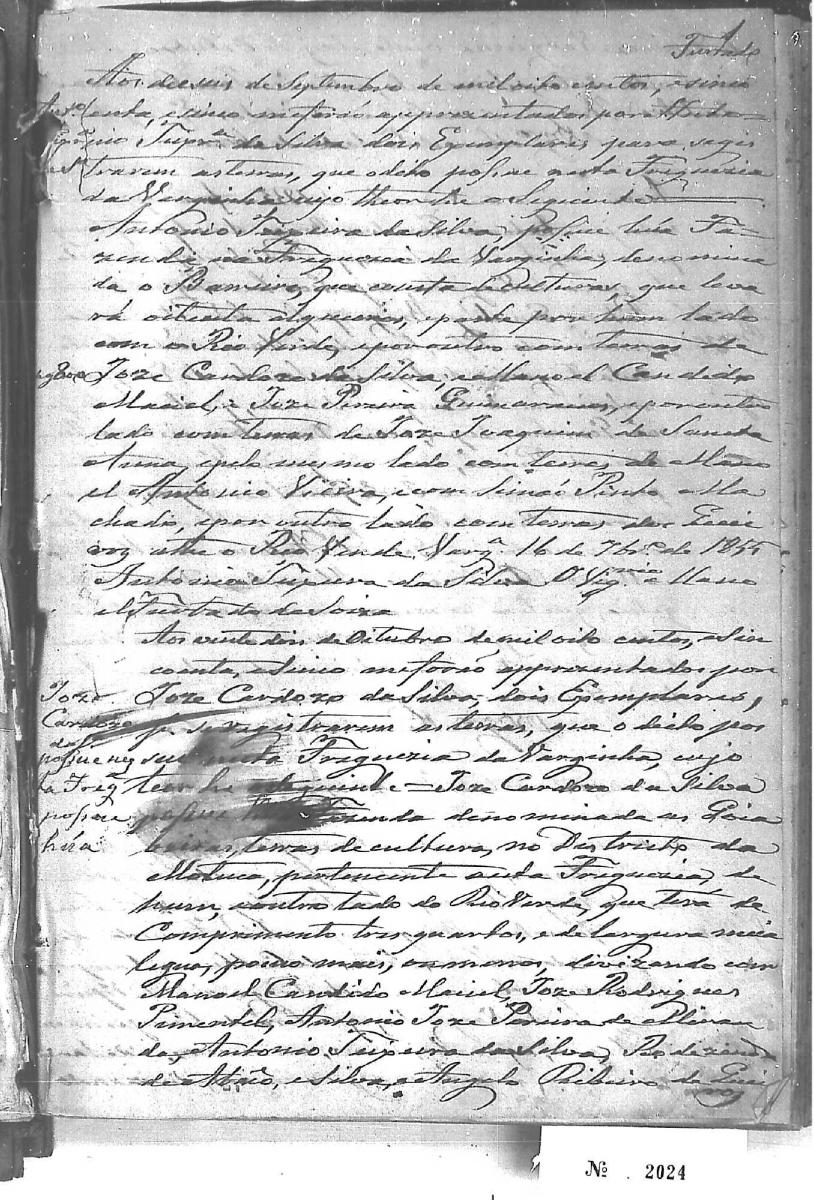 1
Furtado
Aos deseseis de Septembro de mil oito centos, e sinco
enta, e sinco me forão appresentados por Anto=
nio Teixr.ª da Silva dois Exemplares para regis
trarem as terras, que o dito possue nesta Freguezia
da Varginha cujo theor he o Seguinte
Antonio Teixeira da Silva, possue huã Fa=
zenda na Freguezia da Varginha, denomina
da o Barreiro, que consta de culturas, que leva
rá oitenta alqueires, e parte por hum lado
com o Rio Verde, e por outro com terras de
Joze Cardozo da Silva, e Manoel Candido
Maciel, e Joze Pereira Guimaraens, e por outro
lado com terras de Joze Joaquim de Santa
Anna, e pelo mesmo lado com terras de Mano
el Antonio Vieira, e com Simaõ Pinto Ma
chado, e por outro lado com terras de Quei
roz athe o Rio Verde Varg.ª 16 de 7br.º de 1855
Antonio Teixeira da Silva O Vig.rio Mano
el Furtado de Soiza
Aos vinte dois de Oitubro de mil oito centos, e Sin
coenta, e Sinco me forão appresentados por
Joze Cardozo da Silva, dois Exemplares,
p.ª se registrarem as terras, que o dicto pos
sue nesta Freguezia da Varginha, cujo
teor he o Seguinte = Joze Cardozo da Silva
possue huã Fazenda denominada as Goia
beiras, terras de cultura, no Districto da
Mutuca, pertencente a esta Freguezia, de
hum, e outro lado do Rio Verde, que terá de
Comprimento tres quartos, e de largura meia
legua, pouco mais, ou menos, divizando com
Manoel Candido Maciel, Joze Rodrigues
Pimentel, Antonio Joze Pereira de Miran
da, Antonio Teixeira da Silva,
e Silva, e Angelo Ribeiro de Quei
roz
Joze
Cardozo
da S.ª
possue nes
ta Freg
possue
huã
Nº 2024